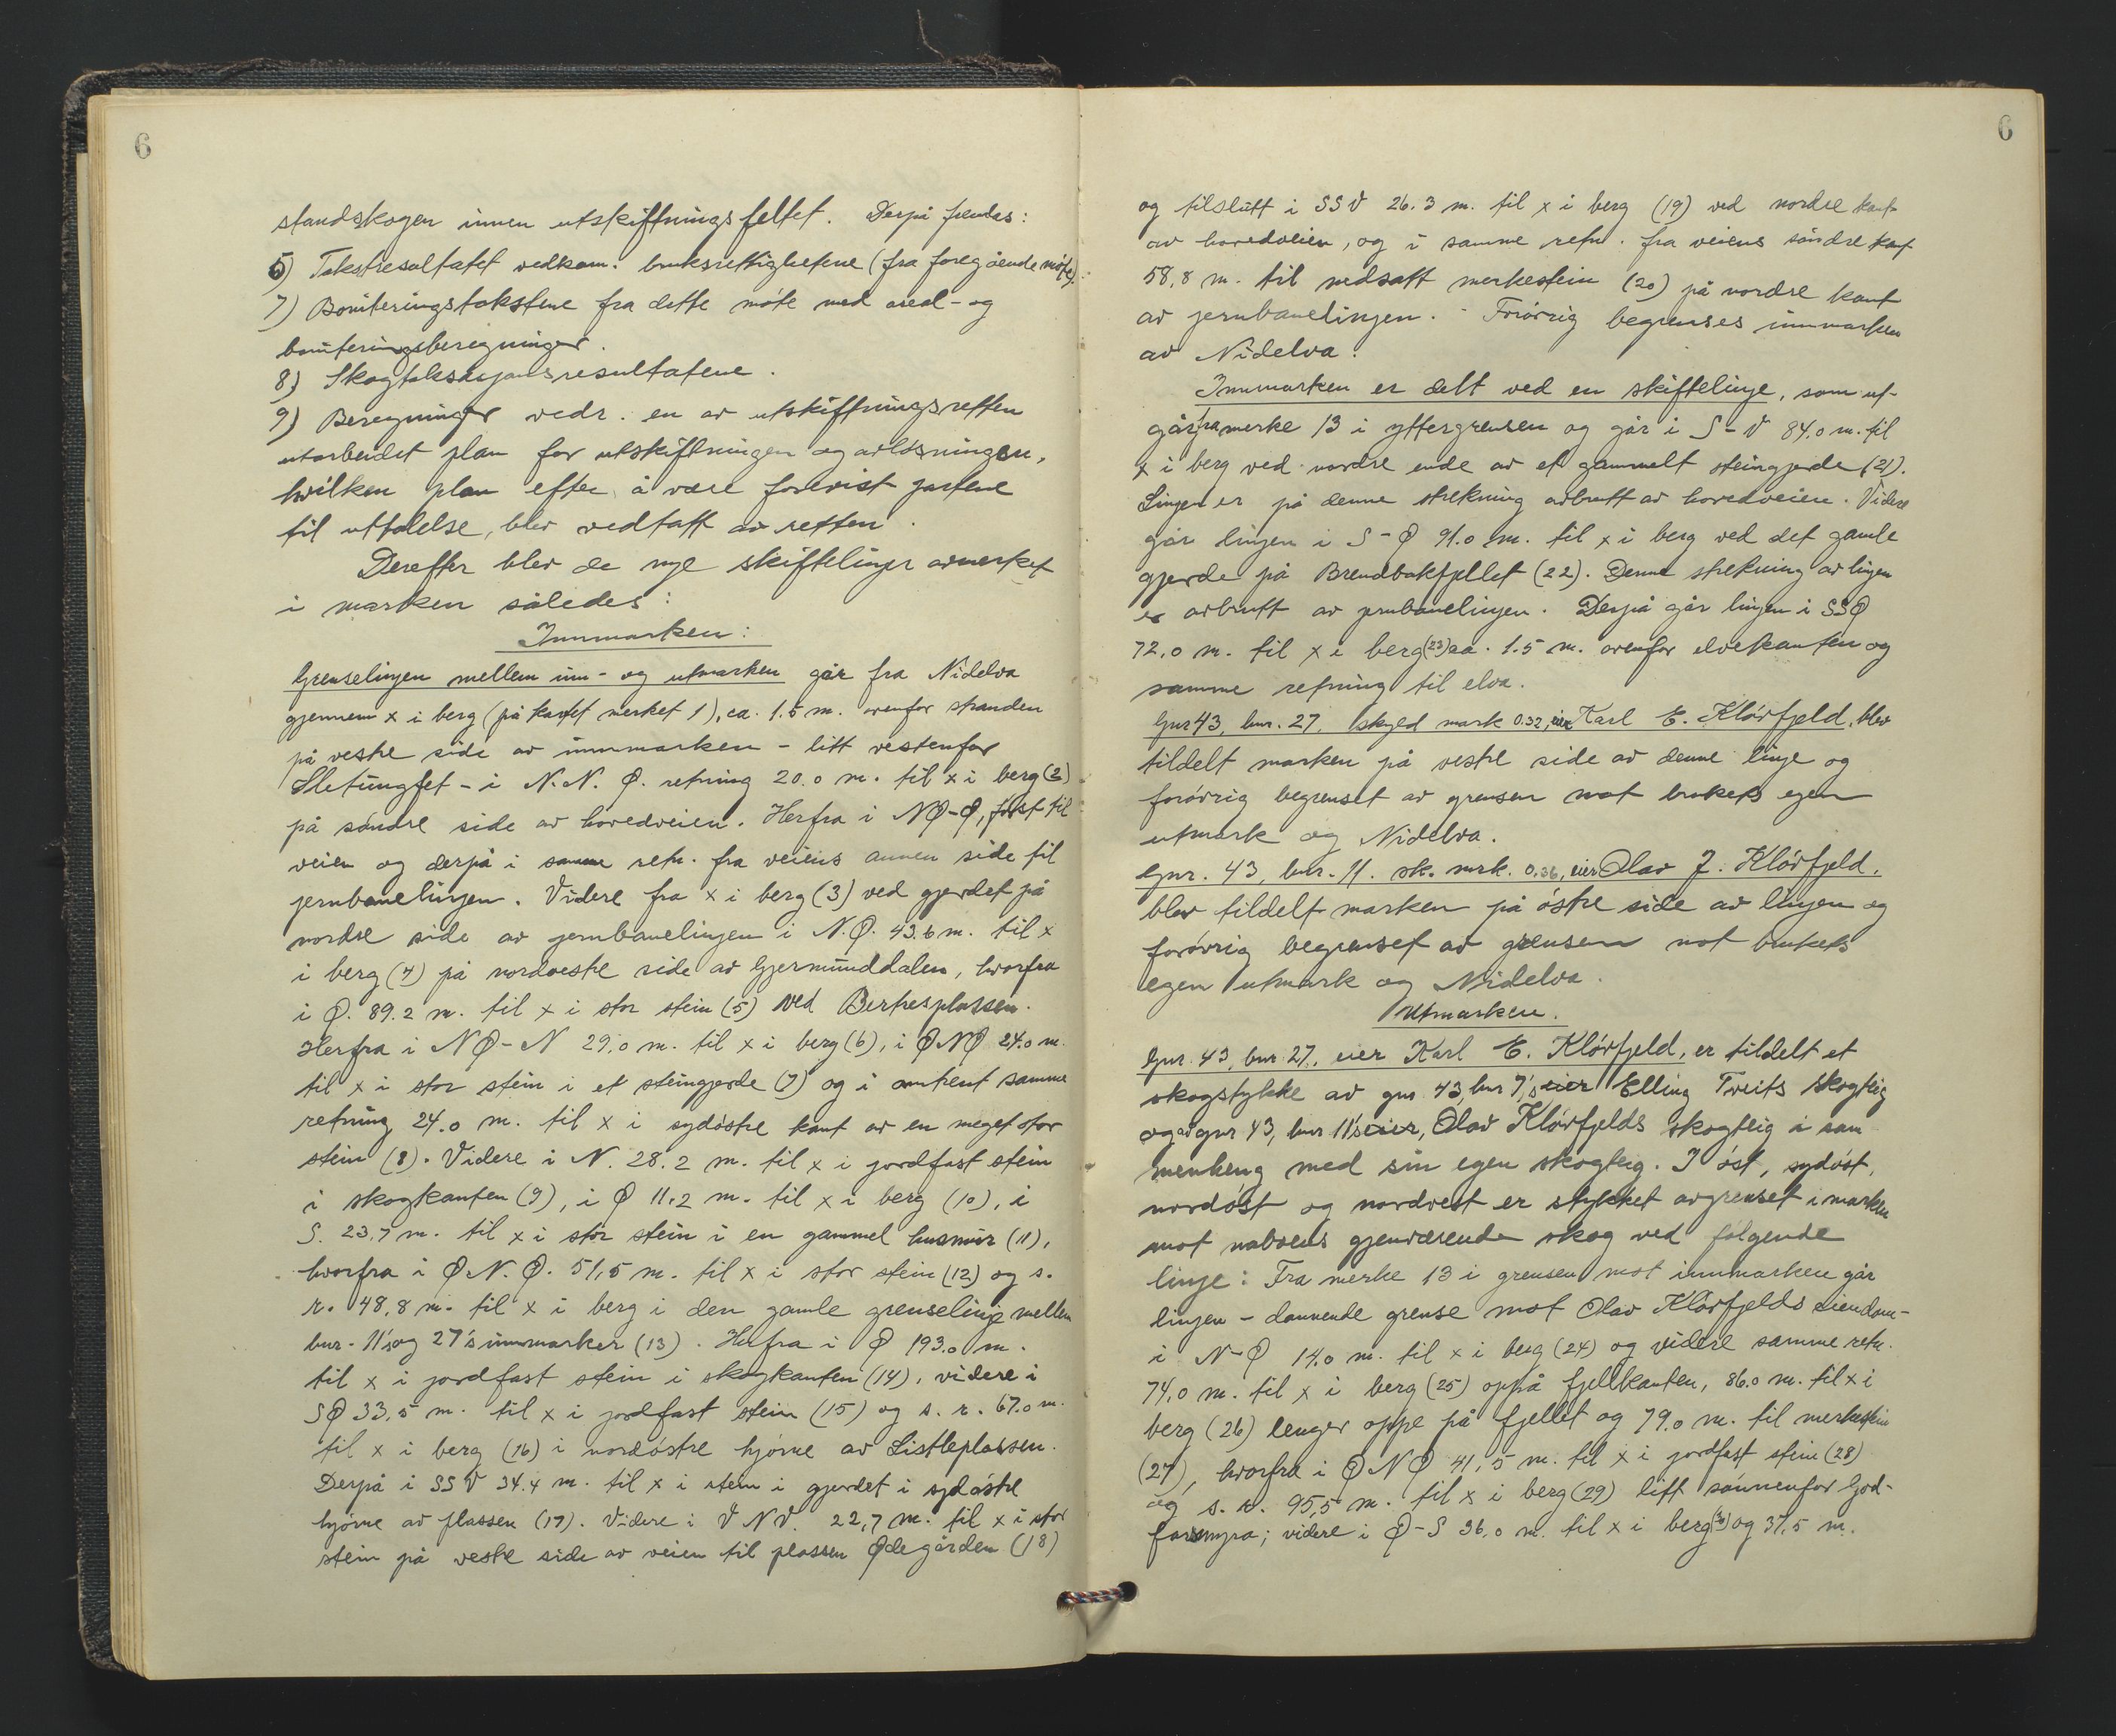 6
standskogen innen utskiftningsfeltet. Derpå
6) Takstresultatet vedkom. bruksrettighetene (fra foregående møte).
7) Boniteringstakstene fra dette møte med areal- og
boniteringsberegninger.
8) Skogtaksasjonsresultatene.
9) Beregninger vedr. en av utskiftningsretten
utarbeidet plan for utskiftningen og avløsningen,
hvilken plan efter å være forevist partene
til uttalelse, blev vedtatt av retten.
Derefter blev de nye skiftelinjer avmerket
i marken således:
Innmarken:
Grenselinjen mellem inn- og utmarken går fra Nidelva
gjennem x i berg (på kartet merket 1), ca. 1.5 m. ovenfor stranden
på vestre side av innmarken - litt vestenfor
- i N.N.Ø. retning 20.0 m. til x i berg (2)
på søndre side av hovedveien. Herfra i NØ-Ø, først til
veien og derpå i samme retn. fra veiens annen side til
jernbanelinjen. Videre fra x i berg (3) ved gjerdet på
nordre side av jernbanelinjen i N.Ø. 43.6 m. til x
i berg (4) på nordvestre side av Gjermunddalen, hvorfra
i Ø. 89.2 m. til x i stor stein (5) ved Berhesplassen.
Herfra i NØ-N 29.0 m. til x i berg (6), i ØNØ 24.0 m.
til x i stor stein i et steingjerde (7) og i omtrent samme
retning 24.0 m. til x i sydøstre kant av en meget stor
stein (8). Videre i N. 28.2 m. til x i jordfast stein
i skogkanten (9), i Ø 11.2 m. til x i berg (10), i
S. 23.7 m. til x i stor stein i en gammel husmur (11),
hvorfra i Ø.N.Ø. 51,5 m. til x i stor stein (12) og s.
r. 48,8 m. til x i berg i den gamle grenselinje mellem
bnr. 11's og 27's innmarker (13). Herfra i Ø 193.0 m.
til x i jordfast stein i skogkanten (14), videre i
SØ 33,5 m. til x i jordfast stein (15) og s. r. 67.0 m.
til x i berg (16) i nordøstre hjørne av Listleplassen.
Derpå i SSV 34.4 m. til x i stein i gjerdet i sydøstre
hjørne av plassen (17). Videre i VNV. 22,7 m. til x i stor
stein på vestre side av veien til plassen Ødegården (18)
6
og tilslutt i SSV 26.3 m. til x i berg (19) ved nordre kant
av hovedveien, og i samme retn. fra veiens søndre kant
58,8 m. til nedsatt merkestein (20) på nordre kant
av jernbanelinjen. Forøvrig begrenses innmarken
av Nidelva.
Innmarken er delt ved en skiftelinje, som ut-
går fra merke 13 i yttergrensen og går i S-V 84.0 m. til
x i berg ved nordre ende av et gammelt steingjerde (21).
Linjen er på denne strekning avbrutt av hovedveien. Videre
går linjen i S-Ø 91.0 m. til x i berg ved det gamle
gjerde på Brendbakfjellet (22). Denne strekning av linjen
er avbrutt av jernbanelinjen. Derpå går linjen i SSØ
72.0 m. til x i berg (23) ca. 1.5 m. ovenfor elvekanten og
samme retning til elva.
Gnr 43, bnr. 27, skyld mark 0.32, eier Karl E. Kløvfjeld, blev
tildelt marken på vestre side av denne linje og
forøvrig begrenset av grensen mot brukets egen
utmark og Nidelva.
Gnr. 43, bnr. 11. sk. mrk. 0.36, eier Olav J. Kløvfjeld,
blev tildelt marken på østre side av linjen og
forøvrig begrenset av grensen mot brukets
egen utmark og Nidelva.
Utmarken.
Gnr. 43, bnr 27, eier Karl E. Kløvfjeld, er tildelt et
skogstykke av gnr 43, bnr 7's, eier Elling Tveits skogteig
og av gnr 43, bnr 11's eier, Olav Kløvfjelds skogteig i sam
menheng med sin egen skogteig. I øst, sydøst,
nordøst og nordvest er stykket avgrenset i marken
mot naboens gjenværende skog ved følgende
linje: Fra merke 13 i grensen mot innmarken går
linjen - dannende grense mot Olav Kløvfjelds eiendom -
i N-Ø 14.0 m. til x i berg (24) og videre samme retn.
74.0 m. til x i berg (25) oppå fjellkanten, 86.0 m. til x i
berg (26) lenger oppe på fjellet og 79.0 m. til merkestein
(27), hvorfra i ØNØ 41,5 m. til x i jordfast stein (28)
og s. r. 95,5 m. til x i berg (29) litt sønnenfor God-
farsmyra; videre i Ø-S 36.0 m. til x i berg (30) og 37.5 m.